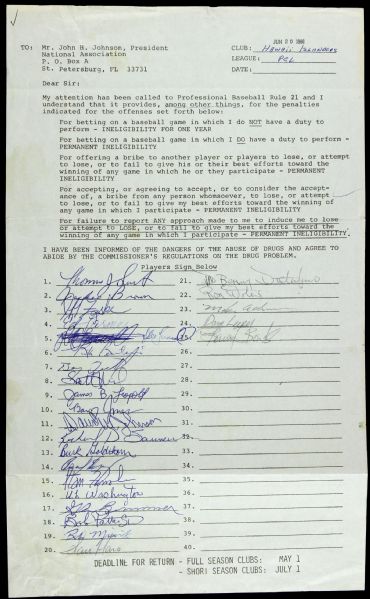 JUN 20 1986
TO: Mr. John H. Johnson, President
National Association
P. O. Box A
St. Petersburg, FL 33731
CLUB: HAWAII ISLANDERS
LEAGUE: PCL
DATE:
Dear Sir:
My attention has been called to Professional Baseball Rule 21 and I
understand that it provides, among other things, for the penalties
indicated for the offenses set forth below:
For betting on a baseball game in which I do NOT have a duty to
perform - INELIGIBILITY FOR ONE YEAR
For betting on a baseball game in which I DO have a duty to perform -
PERMANENT INELIGIBILITY
For offering a bribe to another player or players to lose, or attempt
to lose, or to fail to give his or their best efforts toward the
winning of any game in which he or they participate - PERMANENT
INELIGIBILITY
For accepting, or agreeing to accept, or to consider the accept-
ance of, a bribe from any person whomsoever, to lose, or attempt
to lose, or to fail to give my best efforts toward the winning
of any game in which I participate - PERMANENT INELIGIBILITY
For failure to report ANY approach made to me to induce me to lose
or attempt to LOSE, or to fail to give my best efforts toward the
winning of any game in which I participate - PERMANENT INELIGIBILITY.
I HAVE BEEN INFORMED OF THE DANGERS OF THE ABUSE OF DRUGS AND AGREE TO
ABIDE BY THE COMMISSIONER'S REGULATIONS ON THE DRUG PROBLEM.
Players Sign Below
1.
2. Brown
3.
4.
5.
6.
7.
8. Scott
9. James B. Leopold
10. Barry Jones
11.
12.
13. Buck Goldthorn
14.
15.
16. U.L. Washington
17.
18. Bob Patterson
19.
20.
21. Benny Distefano
22.
23.
24.
25.
26.
27.
28.
29.
30.
31.
32.
33.
34.
35.
36.
37.
38.
39.
40.
DEADLINE FOR RETURN - FULL SEASON CLUBS: MAY 1
- SHORT SEASON CLUBS: JULY 1